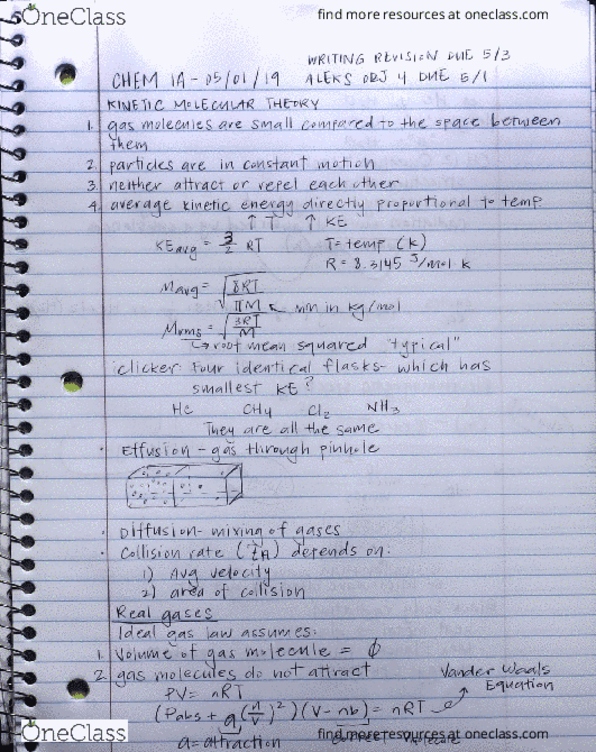 OneClass
find more resources at oneclass.com
WRITING REVISION DUE 5/3
CHEM 1A - 05/01/19 ALEKS OBJ 4 DUE 5/1
KINETIC MOLECULAR THEORY
1. gas molecules are small compared to the space between
them
2. particles are in constant motion
3. neither attract or repel each other
4. average kinetic energy directly proportional to temp
↑ T ↑ KE
KEavg = 3/2 RT T= temp (K)
R = 8.3145 J/mol K
Mavg = √8RT/πM ← MM in kg/mol
Mrms = √3RT/M
↳ root mean squared "typical"
clicker four identical flasks- which has
smallest KE?
He CH4 Cl2 NH3
They are all the same
· Effusion - gas through pinhole
· Diffusion- mixing of gases
· Collision rate (ZA) depends on:
1) Avg velocity
2) area of collision
Real gases
Ideal gas law assumes:
1. Volume of gas molecule = ϕ
2. gas molecules do not attract
Vander Waals
Equation
PV= nRT
(Pabs + a(n/V)²)(V - nb) = nRT
a= attraction
OneClass
find more resources at oneclass.com